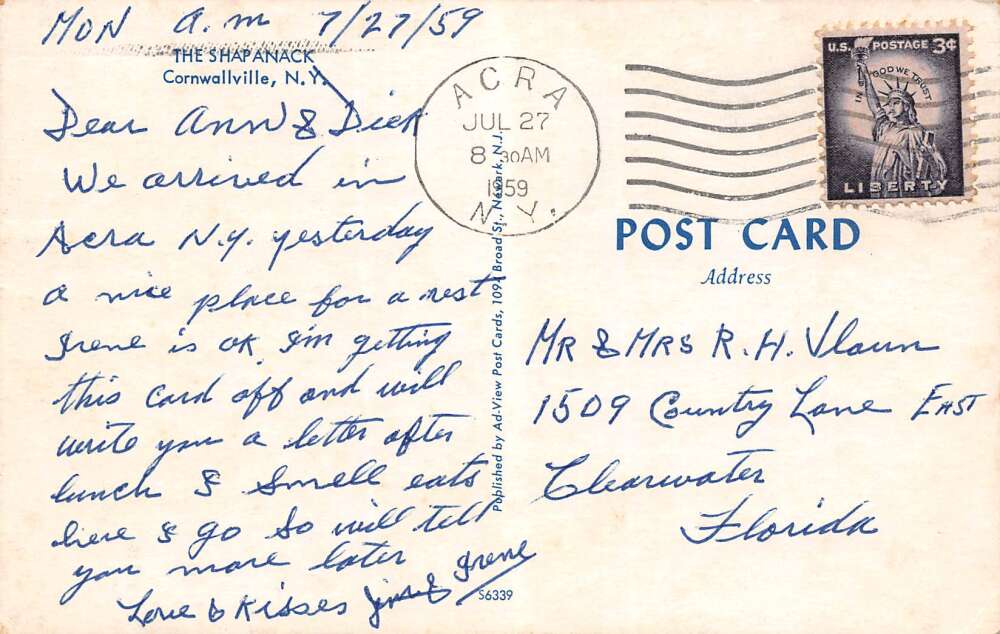 MON a.m 7/27/59
THE SHAPANACK
Cornwallville, N.Y.
Dear Ann & Dick
We arrived in
Acra N.Y. yesterday
a nice place for a rest
Irene is OK I'm getting
this card off and will
write you a letter after
lunch & smell eats
here & go so will tell
you more later
Love & Kisses
Irene
S6339
Published by Ad-View Post Cards, 1091 Broad St., Newark, N.J.
ACRA
JUL 27
8 30AM
1959
N.Y.
U.S. POSTAGE 3¢
IN GOD WE TRUST
LIBERTY
POST CARD
Address
MR & MRS R. H.
1509 Country Lane EAST
Clearwater
Florida